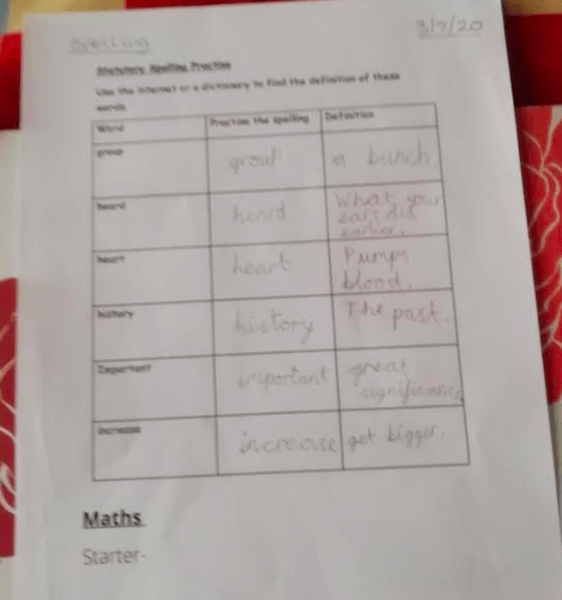 Spelling
3/7/20
Statutory Spelling Practise
Use the internet or a dictionary to find the definition of these
words.
Word Practise the spelling Definition
group group a bunch.
heard heard What your
ears did
earlier.
heart heart Pumps
blood.
history history The past.
Important important great
significance
increase increase get bigger.
Maths
Starter-